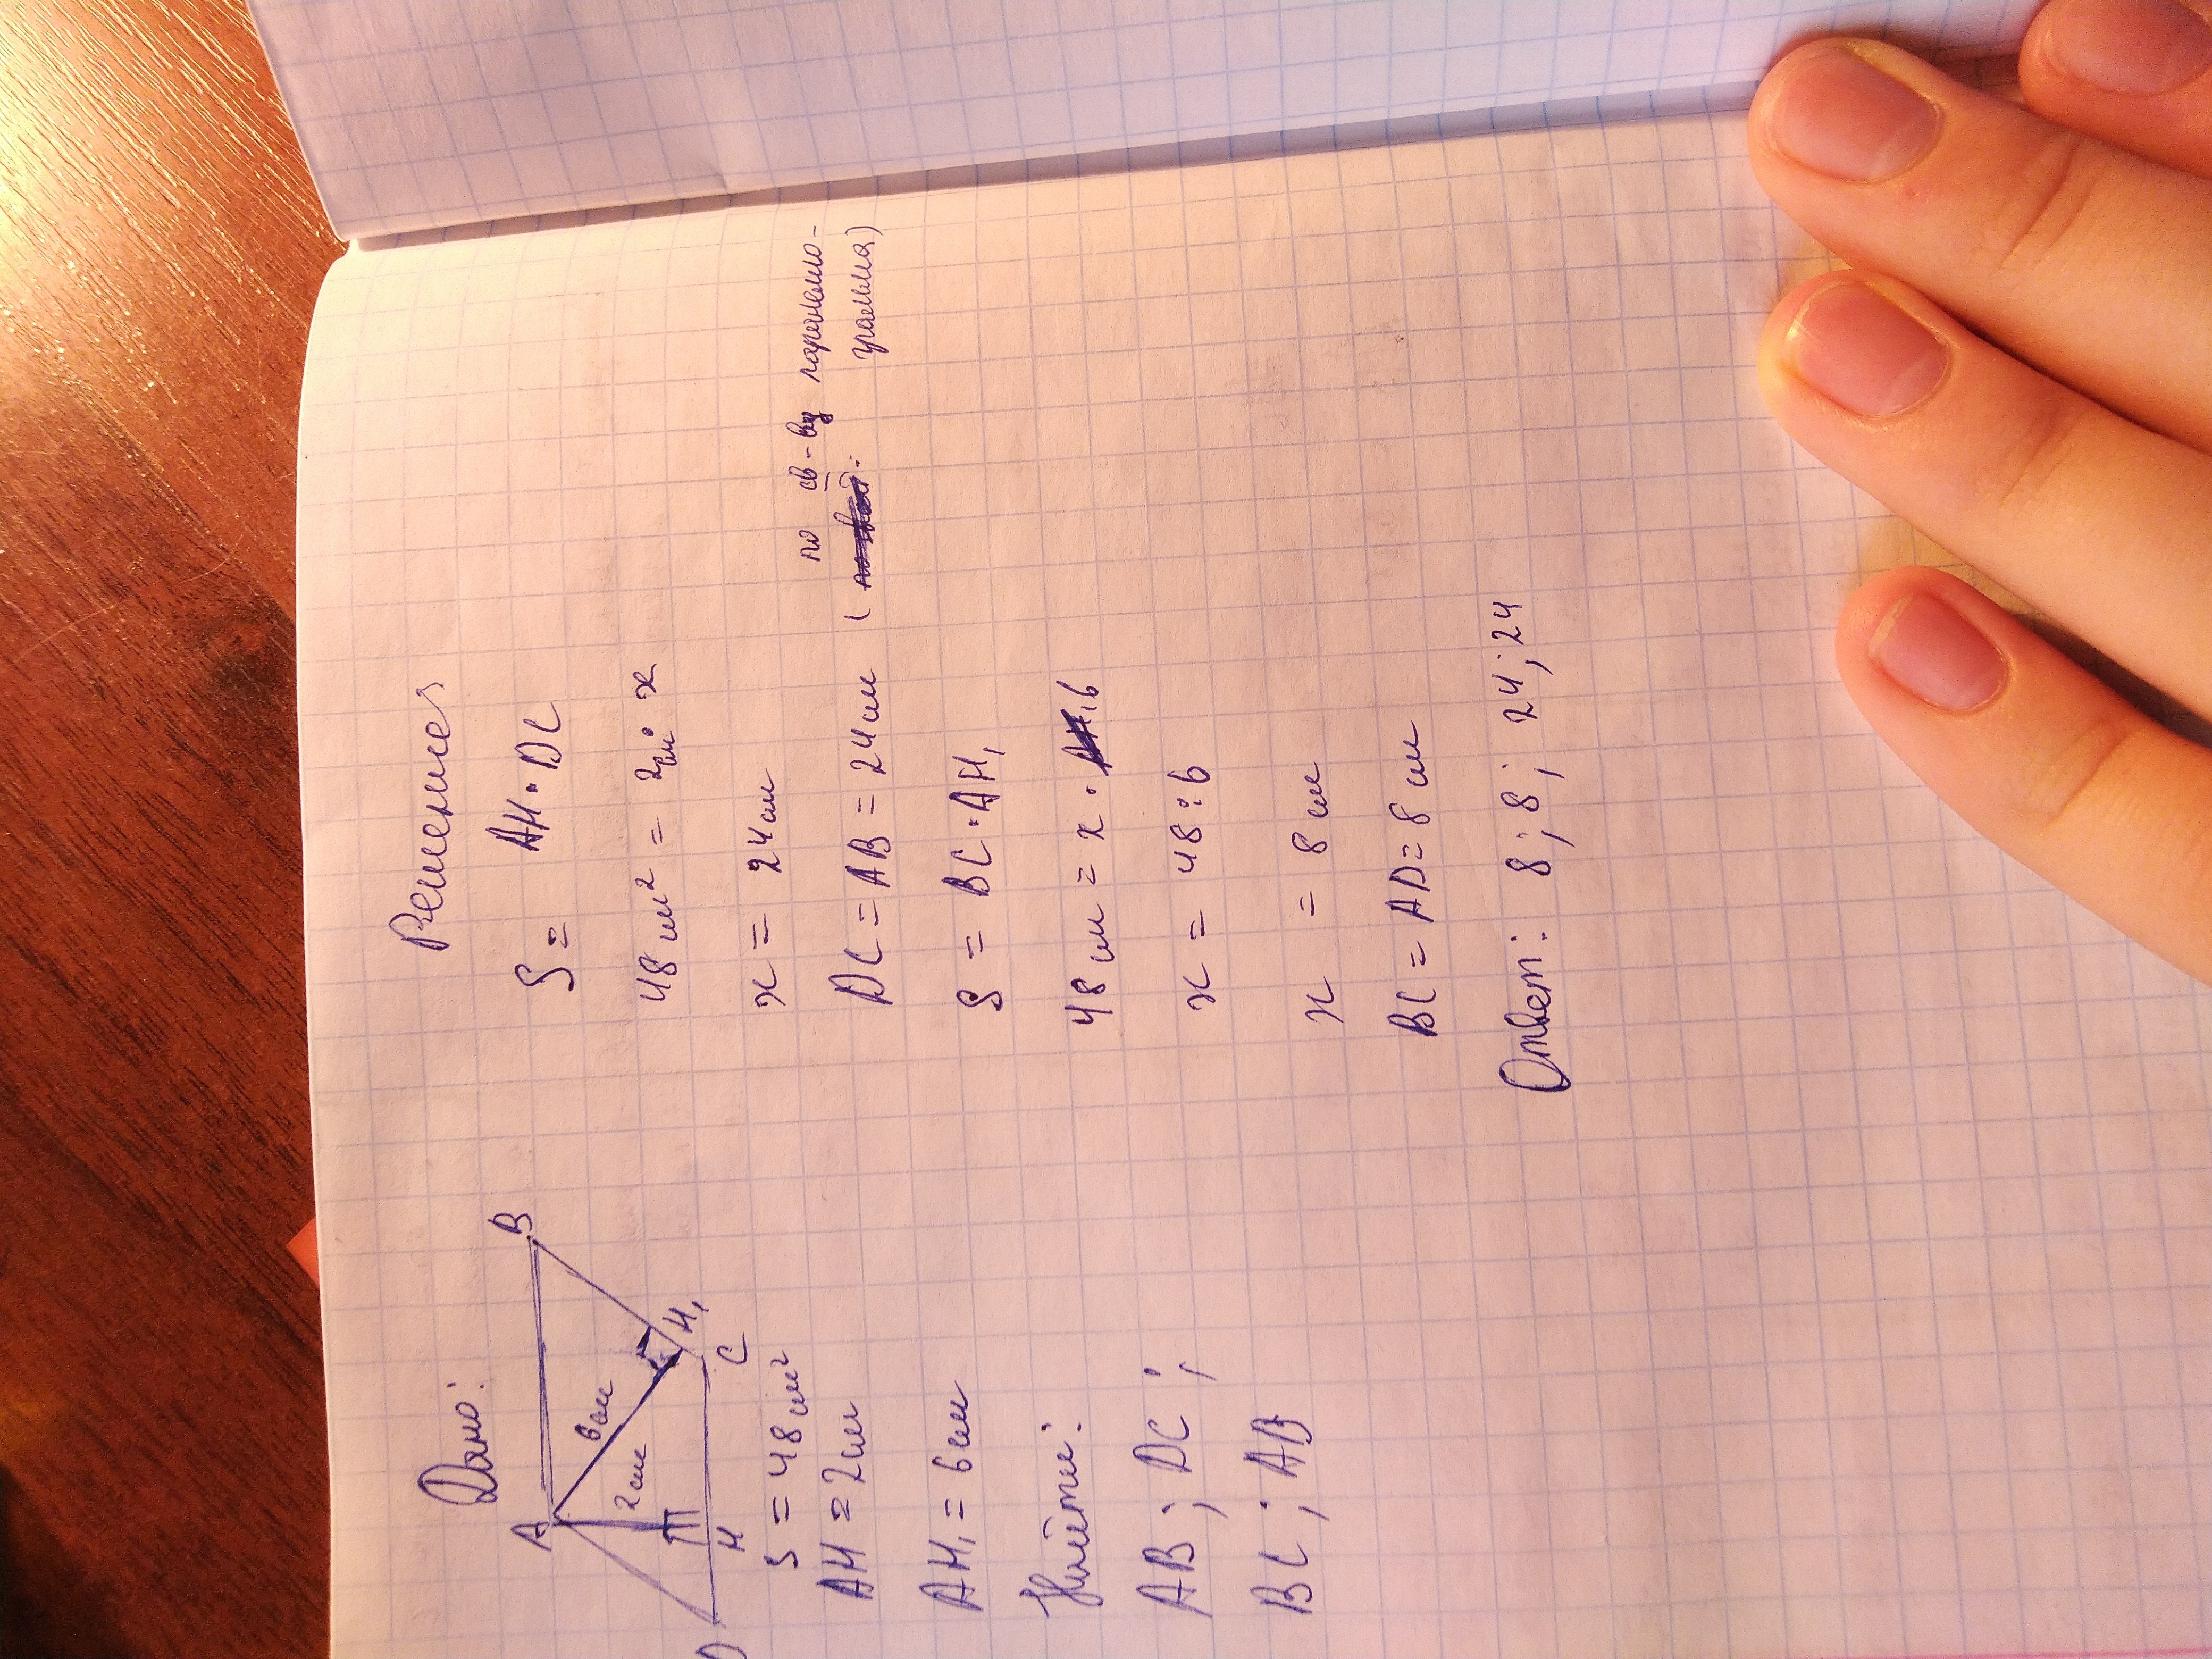 Дано:
A
B
6 см
2 см
H₁
D
H
C
S = 48 см²
AH = 2 см
AH₁ = 6 см
Найти:
AB; DC;
BC; AD
Решение
S = AH · DC
48 см² = 2 см · x
x = 24 см
по св-ву паралело-
DC = AB = 24 см ( грамма)
S = BC · AH₁
48 см = x · 6
x = 48 : 6
x = 8 см
BC = AD = 8 см
Ответ: 8; 8; 24; 24